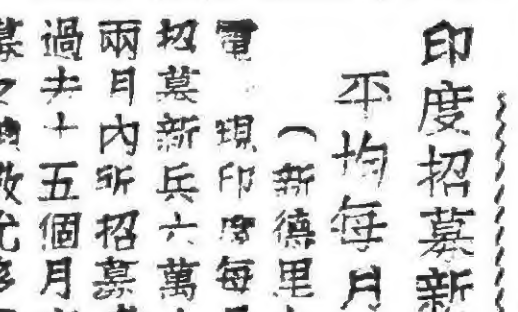 印度招募新
平均每月
（新德里
電 現印度每
招募新兵六萬
兩月內所招募
過去十五個月